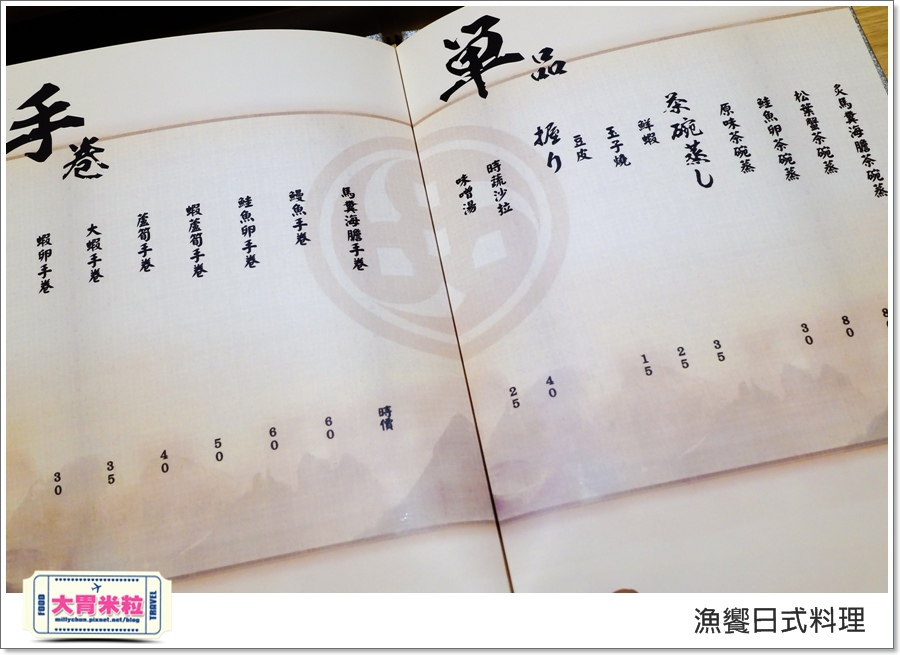 単品
炙馬糞海膽茶碗蒸
松葉蟹茶碗蒸
鮭魚卵茶碗蒸
原味茶碗蒸
茶碗蒸し
鮮蝦
玉子燒
豆皮
握り
時蔬沙拉
味噌湯
80
30
35
25
15
40
25
手巻
馬糞海膽手巻
鰻魚手巻
鮭魚卵手巻
蝦蘆筍手巻
蘆筍手巻
大蝦手巻
蝦卵手巻
時價
60
60
50
40
35
30
FOOD
大胃米粒
millychun.pixnet.net/blog
TRAVEL
漁饗日式料理